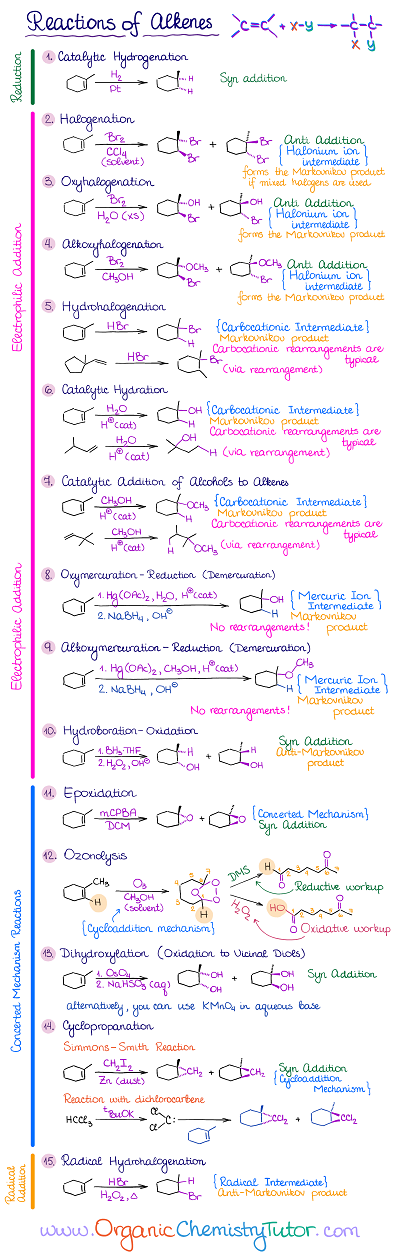 Reactions of Alkenes
C=C + X-Y → C-C
X Y
Reduction
1. Catalytic Hydrogenation
H2
Pt
H
H
Syn addition
Electrophilic Addition
2. Halogenation
Br2
CCl4
(solvent)
Br
Br
+
Br
Br
Anti Addition
{Halonium ion intermediate}
forms the Markovnikov product
if mixed halogens are used
3. Oxyhalogenation
Br2
H2O (xs)
OH
Br
+
OH
Br
Anti Addition
{Halonium ion intermediate}
forms the Markovnikov product
4. Alkoxyhalogenation
Br2
CH3OH
OCH3
Br
+
OCH3
Br
Anti Addition
{Halonium ion intermediate}
forms the Markovnikov product
5. Hydrohalogenation
HBr
Br
H
{Carbocationic Intermediate}
Markovnikov product
Carbocationic rearrangements are
typical
HBr
Br
(via rearrangement)
6. Catalytic Hydration
H2O
H⊕(cat)
OH
H
{Carbocationic Intermediate}
Markovnikov product
Carbocationic rearrangements are
typical
H2O
H⊕(cat)
OH
H
(via rearrangement)
7. Catalytic Addition of Alcohols to Alkenes
CH3OH
H⊕(cat)
OCH3
H
{Carbocationic Intermediate}
Markovnikov product
Carbocationic rearrangements are
typical
CH3OH
H⊕(cat)
H
OCH3
(via rearrangement)
Electrophilic Addition
8. Oxymercuration-Reduction (Demercuration)
1. Hg(OAc)2, H2O, H⊕(cat)
2. NaBH4, OH⊖
OH
H
{Mercuric Ion Intermediate}
Markovnikov
product
No rearrangements!
9. Alkoxymercuration-Reduction (Demercuration)
1. Hg(OAc)2, CH3OH, H⊕(cat)
2. NaBH4, OH⊖
O CH3
H
{Mercuric Ion Intermediate}
Markovnikov
product
No rearrangements!
10. Hydroboration-Oxidation
1. BH3·THF
2. H2O2, OH⊖
H
OH
+
H
OH
Syn Addition
Anti-Markovnikov
product
Concerted Mechanism Reactions
11. Epoxidation
mCPBA
DCM
O
+
O
{Concerted Mechanism}
Syn Addition
12. Ozonolysis
CH3
H
O3
CH3OH
(solvent)
{Cycloaddition mechanism}
DMS
H
O
O
Reductive workup
H2O2
HO
O
O
Oxidative workup
13. Dihydroxylation (Oxidation to Vicinal Diols)
1. OsO4
2. NaHSO3 (aq)
OH
OH
+
OH
OH
Syn Addition
alternatively, you can use KMnO4 in aqueous base
14. Cyclopropanation
Simmons-Smith Reaction
CH2I2
Zn (dust)
CH2
+
CH2
Syn Addition
{Cycloaddition
Mechanism}
Reaction with dichlorocarbene
HCCl3
tBuOK
Cl
Cl
C:
CCl2
+
CCl2
Radical Addition
15. Radical Hydrohalogenation
HBr
H2O2, Δ
H
Br
{Radical Intermediate}
Anti-Markovnikov product
www.OrganicChemistryTutor.com